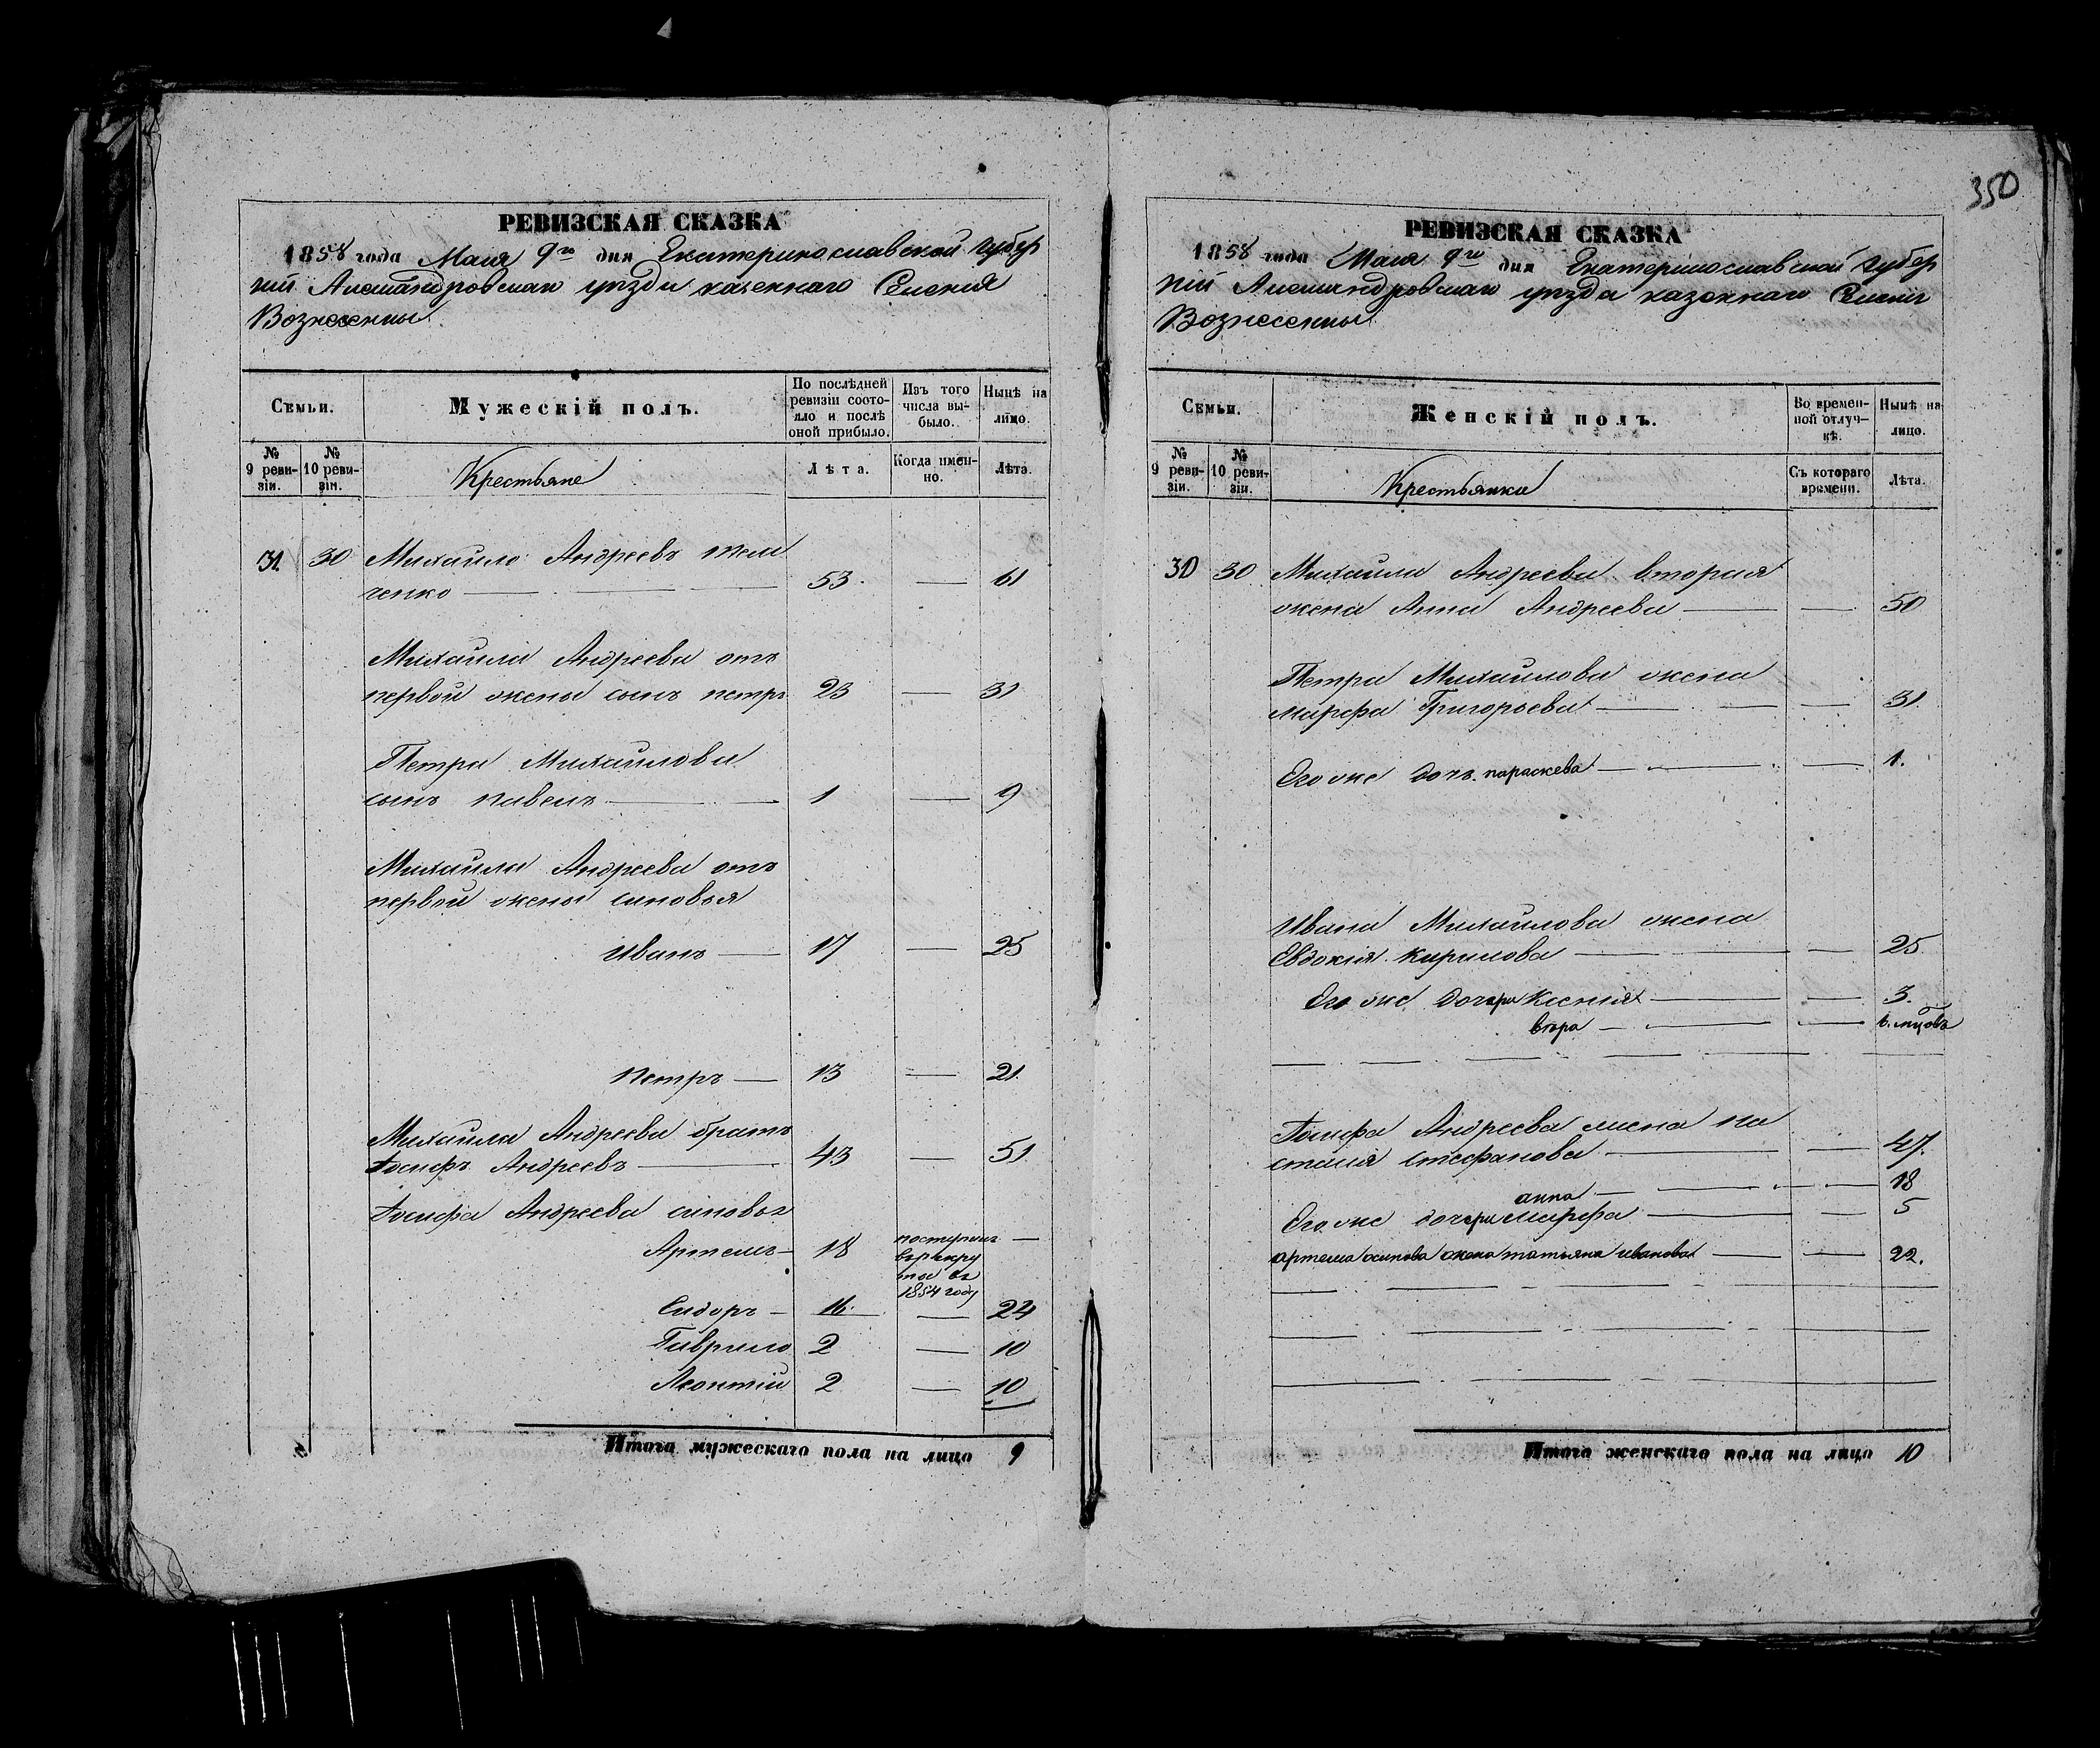 350
РЕВИЗСКАЯ СКАЗКА
1858 года Мая 9го дня Екатеринославской губер
ніи Александровскаго уѣзда казеннаго Селенія
Вознесенки
Семьи.
Мужескій полъ.
По послѣдней ревизіи состояло и послѣ оной прибыло.
Изъ того числа выбыло.
Нынѣ на лицо.
№ 9 ревизіи.
№ 10 ревизіи.
Крестьяне
Лѣта.
Когда именно.
Лѣта.
31. 30 Михайло Андреевъ
ченко — 53. — 61
Михайла Андреева отъ
первой жены сынъ петръ 23 — 31
Петра Михайлова
сынъ павелъ — 1 — 9
Михайла Андреева отъ
первой жены синовья
Иванъ — 17 — 25
Петръ — 13 — 21.
Михайла Андреева братъ
Іосифъ Андреевъ — 43 — 51
Іосифа Андреева синовья
Артемъ — 18 поступилъ —
въ рекру
ты въ
1854 году
Сидоръ — 16. — 24
Гаврило 2 — 10
Леонтій 2 — 10
Итого мужескаго пола на лицо 9
РЕВИЗСКАЯ СКАЗКА
1858 года Мая 9го дня Екатеринославской губер
ніи Александровскаго уѣзда казеннаго Селенія
Вознесенки
Семьи.
Женскій полъ.
Во временной отлучкѣ.
Нынѣ на лицо.
№ 9 ревизіи.
№ 10 ревизіи.
Крестьянки
Съ котораго времени.
Лѣта.
30 30 Михайла Андреева вторая
жена Анна Андреева — — 50
Петра Михайлова жена
марфа Григорьева — — 31.
Его же дочь параскева — — 1.
Ивана Михайлова жена
Евдокія Кирилова — — 25
Его же дочери Ксенія — — 3.
вѣра — — мцовъ
Іосифа Андреева жена На
сталія Стефанова — — 47.
анна — — 18
Его же дочери Марфа — — 5
артема осипова жена татьяна иванова — — 22.
Итого женскаго пола на лицо 10